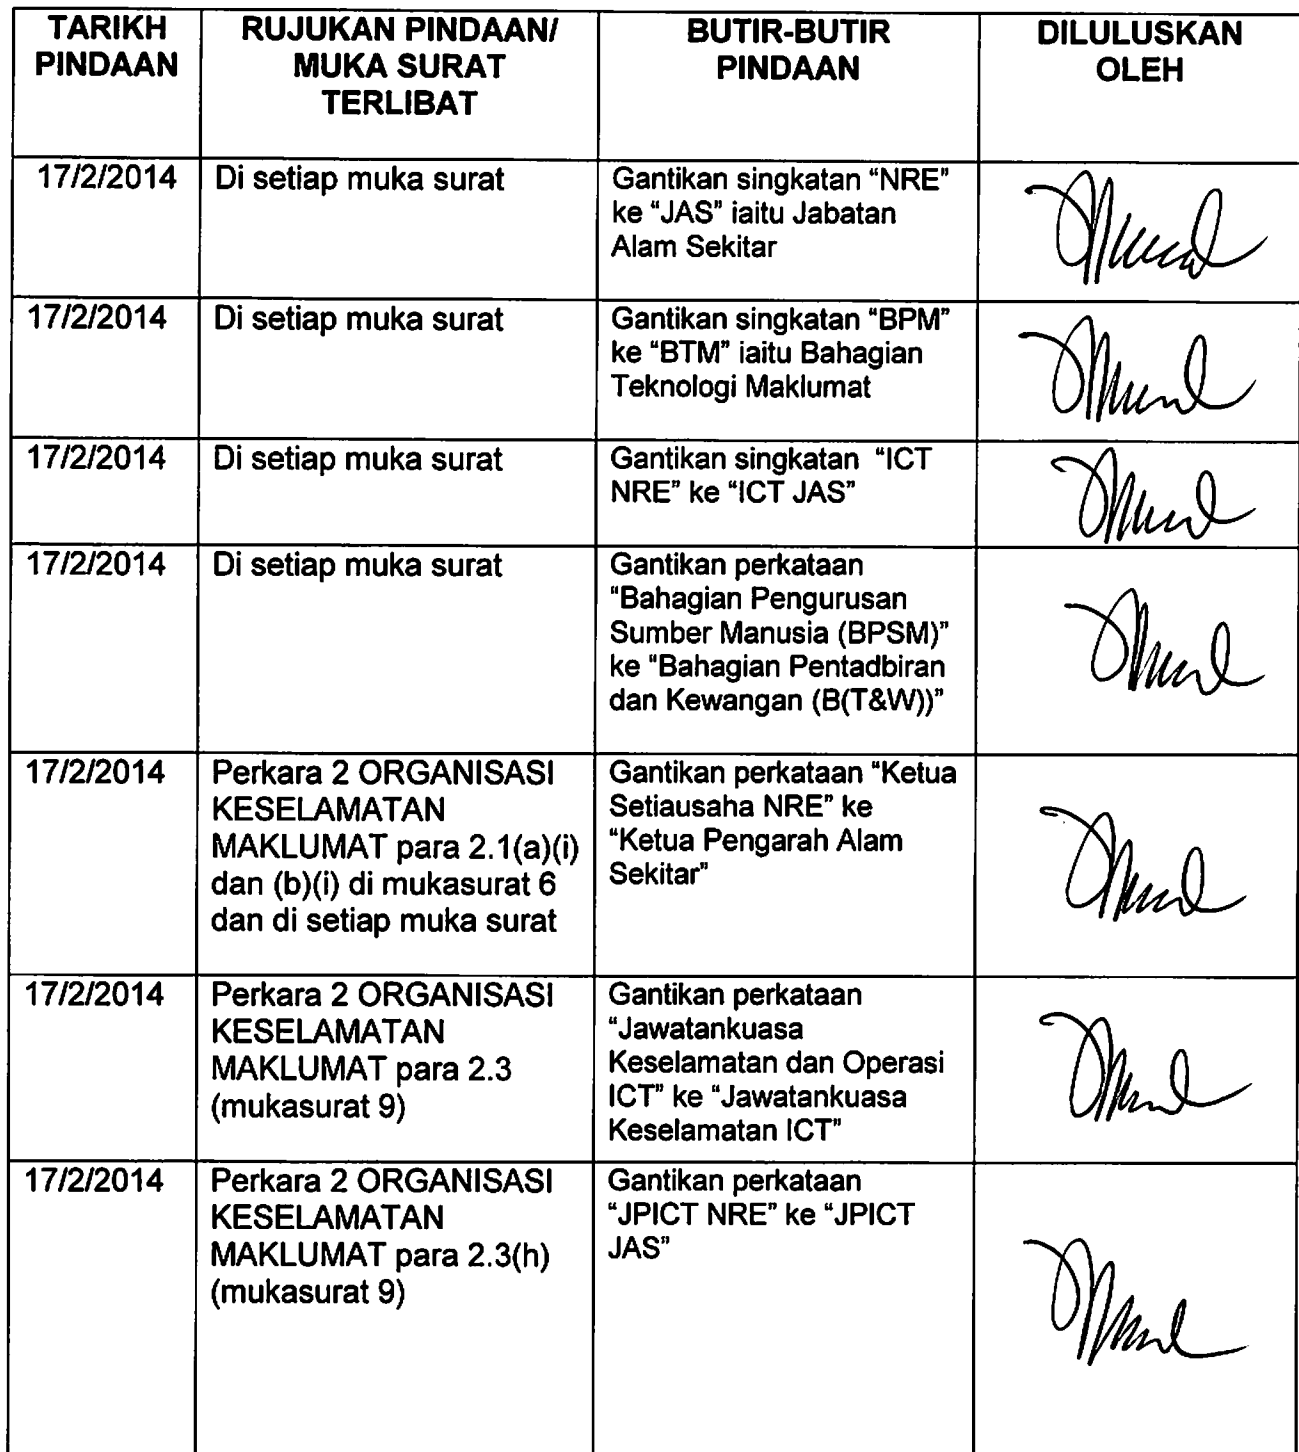 TARIKH
PINDAAN
RUJUKAN PINDAAN/
MUKA SURAT
TERLIBAT
BUTIR-BUTIR
PINDAAN
DILULUSKAN
OLEH
17/2/2014
Di setiap muka surat
Gantikan singkatan “NRE”
ke “JAS” iaitu Jabatan
Alam Sekitar
17/2/2014
Di setiap muka surat
Gantikan singkatan “BPM”
ke “BTM” iaitu Bahagian
Teknologi Maklumat
17/2/2014
Di setiap muka surat
Gantikan singkatan “ICT
NRE” ke “ICT JAS”
17/2/2014
Di setiap muka surat
Gantikan perkataan
“Bahagian Pengurusan
Sumber Manusia (BPSM)”
ke “Bahagian Pentadbiran
dan Kewangan (B(T&W))”
17/2/2014
Perkara 2 ORGANISASI
KESELAMATAN
MAKLUMAT para 2.1(a)(i)
dan (b)(i) di mukasurat 6
dan di setiap muka surat
Gantikan perkataan “Ketua
Setiausaha NRE” ke
“Ketua Pengarah Alam
Sekitar”
17/2/2014
Perkara 2 ORGANISASI
KESELAMATAN
MAKLUMAT para 2.3
(mukasurat 9)
Gantikan perkataan
“Jawatankuasa
Keselamatan dan Operasi
ICT” ke “Jawatankuasa
Keselamatan ICT”
17/2/2014
Perkara 2 ORGANISASI
KESELAMATAN
MAKLUMAT para 2.3(h)
(mukasurat 9)
Gantikan perkataan
“JPICT NRE” ke “JPICT
JAS”